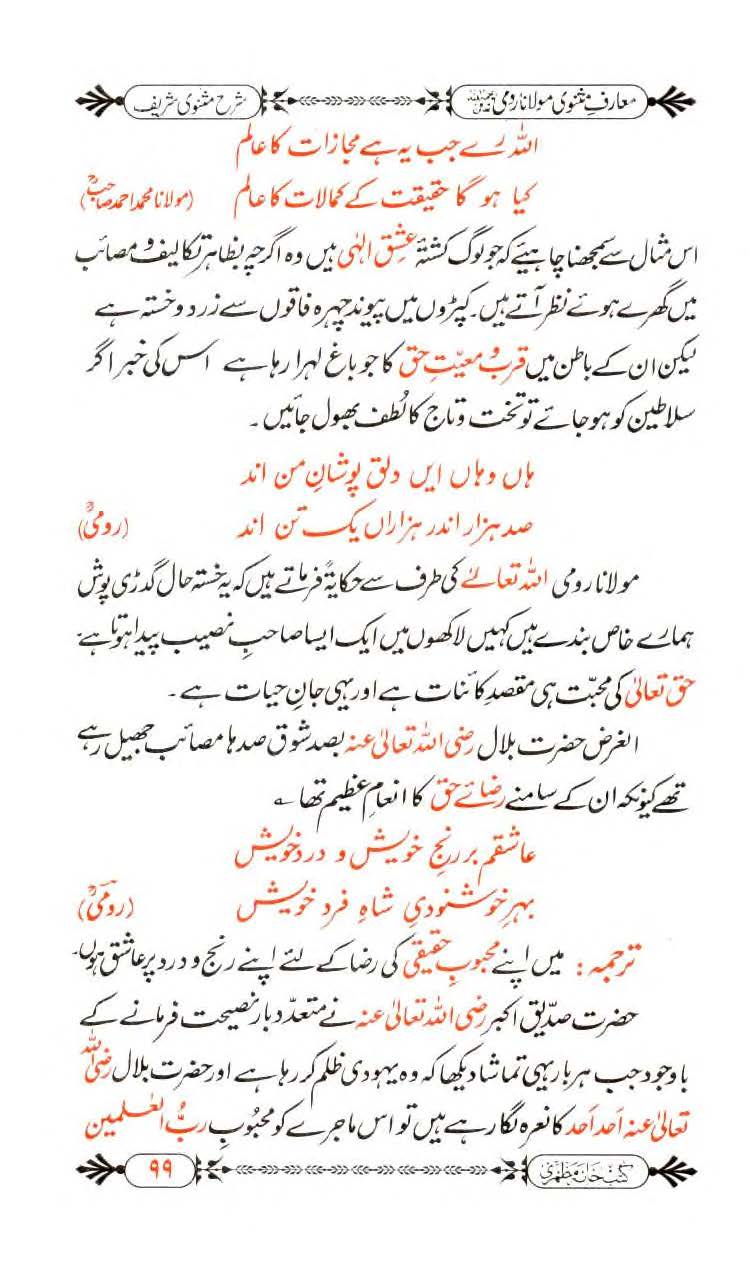 معارفِ مثنوی مولانا رومی رحمۃ اللہ علیہ
شرح مثنوی شریف
اللہ رے جب یہ ہے مجازات کا عالم
کیا ہو گا حقیقت کے کمالات کا عالم (مولانا محمد احمد صاحبؒ)
اس مثال سے سمجھنا چاہیئے کہ جو لوگ کشتۂ عشقِ الٰہی ہیں وہ اگرچہ بظاہر تکالیف و مصائب
میں گھرے ہوئے نظر آتے ہیں۔ کپڑوں میں پیوند چہرہ فاقوں سے زرد و خستہ ہے
لیکن ان کے باطن میں قرب و معیّتِ حق کا جو باغ لہرا رہا ہے اس کی خبر اگر
سلاطین کو ہو جائے تو تخت و تاج کا لُطف بھول جائیں۔
ہاں وہاں ایں دلق پوشانِ من اند
صد ہزار اندر ہزاراں یک تن اند (رومیؒ)
مولانا رومی اللہ تعالےٰ کی طرف سے حکایۃً فرماتے ہیں کہ یہ خستہ حال گدڑی پوش
ہمارے خاص بندے ہیں کہیں لاکھوں میں ایک ایسا صاحبِ نصیب پیدا ہوتا ہے۔
حق تعالیٰ کی محبّت ہی مقصدِ کائنات ہے اور یہی جانِ حیات ہے۔
الغرض حضرت بلال رضی اللہ تعالیٰ عنہ بصد شوق صدہا مصائب جھیل رہے
تھے کیونکہ ان کے سامنے رضائے حق کا انعامِ عظیم تھا ؎
عاشقم بر رنجِ خویش و دردِ خویش
بہرِ خوشنودیِ شاہِ فردِ خویش (رومیؒ)
ترجمہ: میں اپنے محبوبِ حقیقی کی رضا کے لئے اپنے رنج و درد پر عاشق ہوں۔
حضرت صدّیق اکبر رضی اللہ تعالیٰ عنہ نے متعدّد بار نصیحت فرمانے کے
باوجود جب ہر بار یہی تماشا دیکھا کہ وہ یہودی ظلم کر رہا ہے اور حضرت بلال رضی اللہ
تعالیٰ عنہ اَحد اَحد کا نعرہ لگا رہے ہیں تو اس ماجرے کو محبُوبِ ربُّ العٰلمین
کتب خانہ مظہری
۹۹